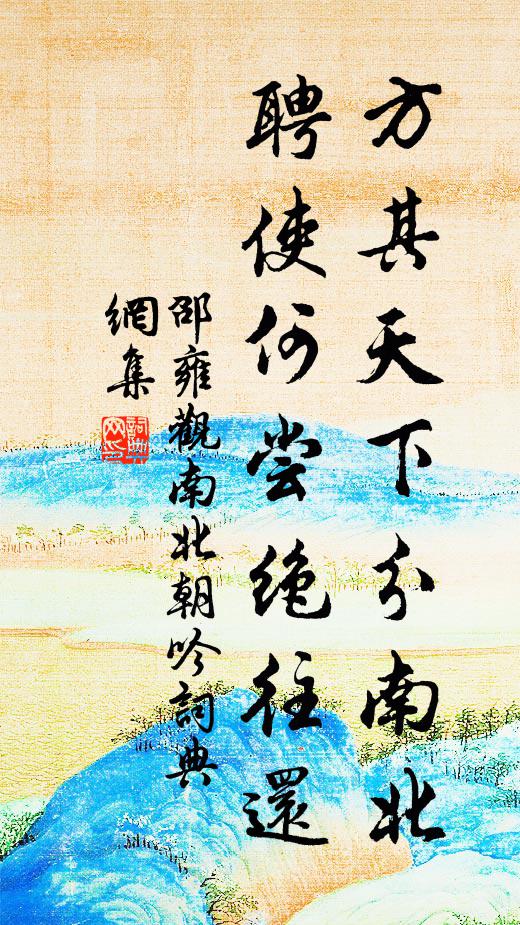 方其天下分南北
聘使何尝绝往還
邵雍觀南北朝吟詞典
網集